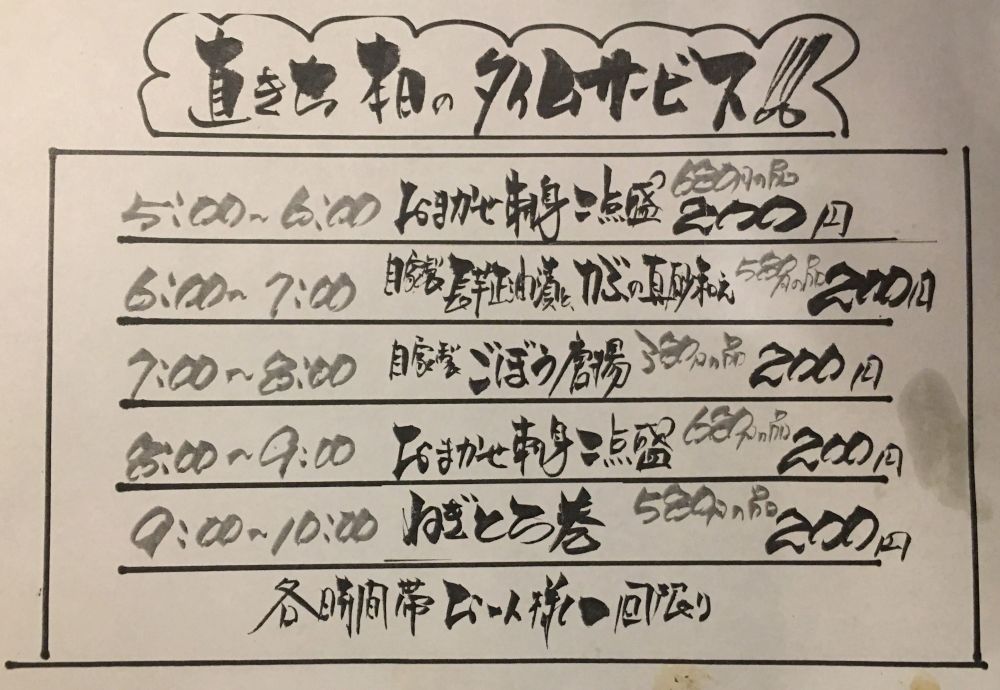 直きち 本日の タイムサービス!!!
5:00〜6:00 おまかせ刺身二点盛 680円の品 200円
6:00〜7:00 自家製 長芋正油漬と かぶの真砂和え 580円の品 200円
7:00〜8:00 自家製 ごぼう唐揚 380円の品 200円
8:00〜9:00 おまかせ刺身二点盛 680円の品 200円
9:00〜10:00 ねぎとろ巻 580円の品 200円
各時間帯 お一人様 一回限り